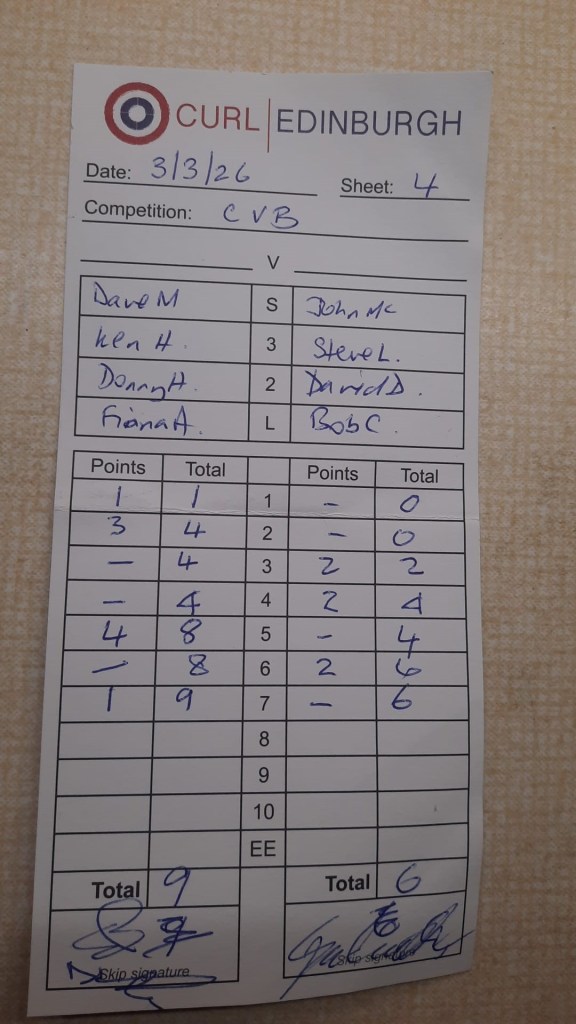 CURL | EDINBURGH
Date: 3/3/26 Sheet: 4
Competition: C V B
V
Dave M S John Mc
Ken H. 3 Steve L.
Donny H. 2 David D.
Fiona A. L Bob C.
Points Total Points Total
1 1 1 - 0
3 4 2 - 0
- 4 3 2 2
- 4 4 2 4
4 8 5 - 4
- 8 6 2 6
1 9 7 - 6
8
9
10
EE
Total 9 Total 6
Skip signature Skip signature